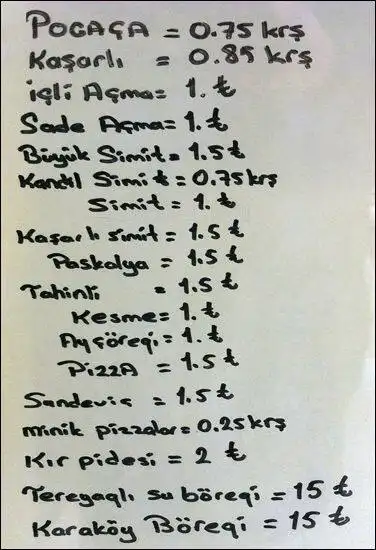 POGAÇA = 0.75 krş
Kaşarlı = 0.85 krş
içli Açma = 1. ₺
Sade Açma = 1. ₺
Büyük Simit = 1.5 ₺
Kandil Simit = 0.75 krş
Simit = 1. ₺
Kaşarlı simit = 1.5 ₺
Paskalya = 1.5 ₺
Tahinli = 1.5 ₺
Kesme = 1. ₺
Ayçöreği = 1. ₺
PizzA = 1.5 ₺
Sandeviç = 1.5 ₺
minik pizzalar = 0.25 krş
Kır pidesi = 2 ₺
Tereyağlı su böreği = 15 ₺
Karaköy Böreği = 15 ₺